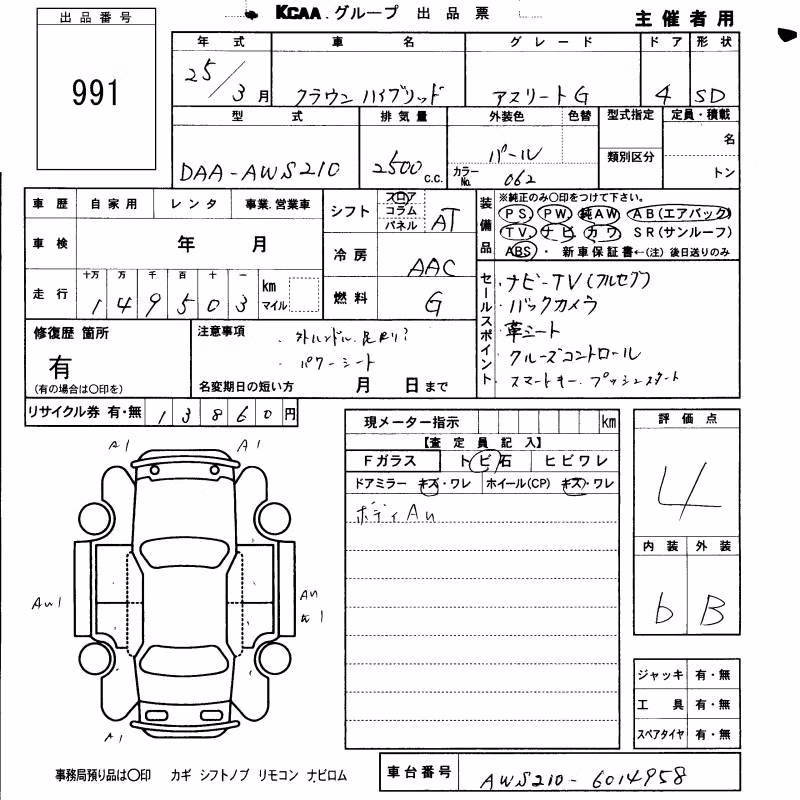 KCAA.グループ 出品票
主催者用
出品番号
991
年式 車名 グレード ドア 形状
25/3月 クラウン ハイブリッド アスリートG 4 SD
型式 排気量 外装色 色替 型式指定 定員・積載
DAA-AWS210 2500c.c. パール 名
カラーNo. 062 類別区分 トン
車歴 自家用 レンタ 事業.営業車
車検 年 月
走行 十万 万 千 百 十 一 km マイル
1 4 9 5 0 3
シフト フロア コラム パネル AT
冷房 AAC
燃料 G
装備品 ※純正のみ○印をつけて下さい。
PS PW 純AW AB(エアバック)
TV ナビ カワ SR(サンルーフ)
ABS ・ 新車保証書←(注) 後日送りのみ
セールスポイント
・ナビ-TV(フルセグ)
・バックカメラ
・革シート
・クルーズコントロール
・スマートキー. プッシュスタート
修復歴 箇所
有
(有の場合は○印を)
注意事項
・パワーシート
名変期日の短い方 月 日まで
リサイクル券 有・無 13860円
現メーター指示 km
【査定員記入】
Fガラス トビ石 ヒビワレ
ドアミラー キズ・ワレ ホイール(CP) キズ・ワレ
ボディAu
評価点
4
内装 外装
b B
A1 A1
Au1
A1
ジャッキ 有・無
工具 有・無
スペアタイヤ 有・無
事務局預り品は○印 カギ シフトノブ リモコン ナビロム
車台番号 AWS210-6014958